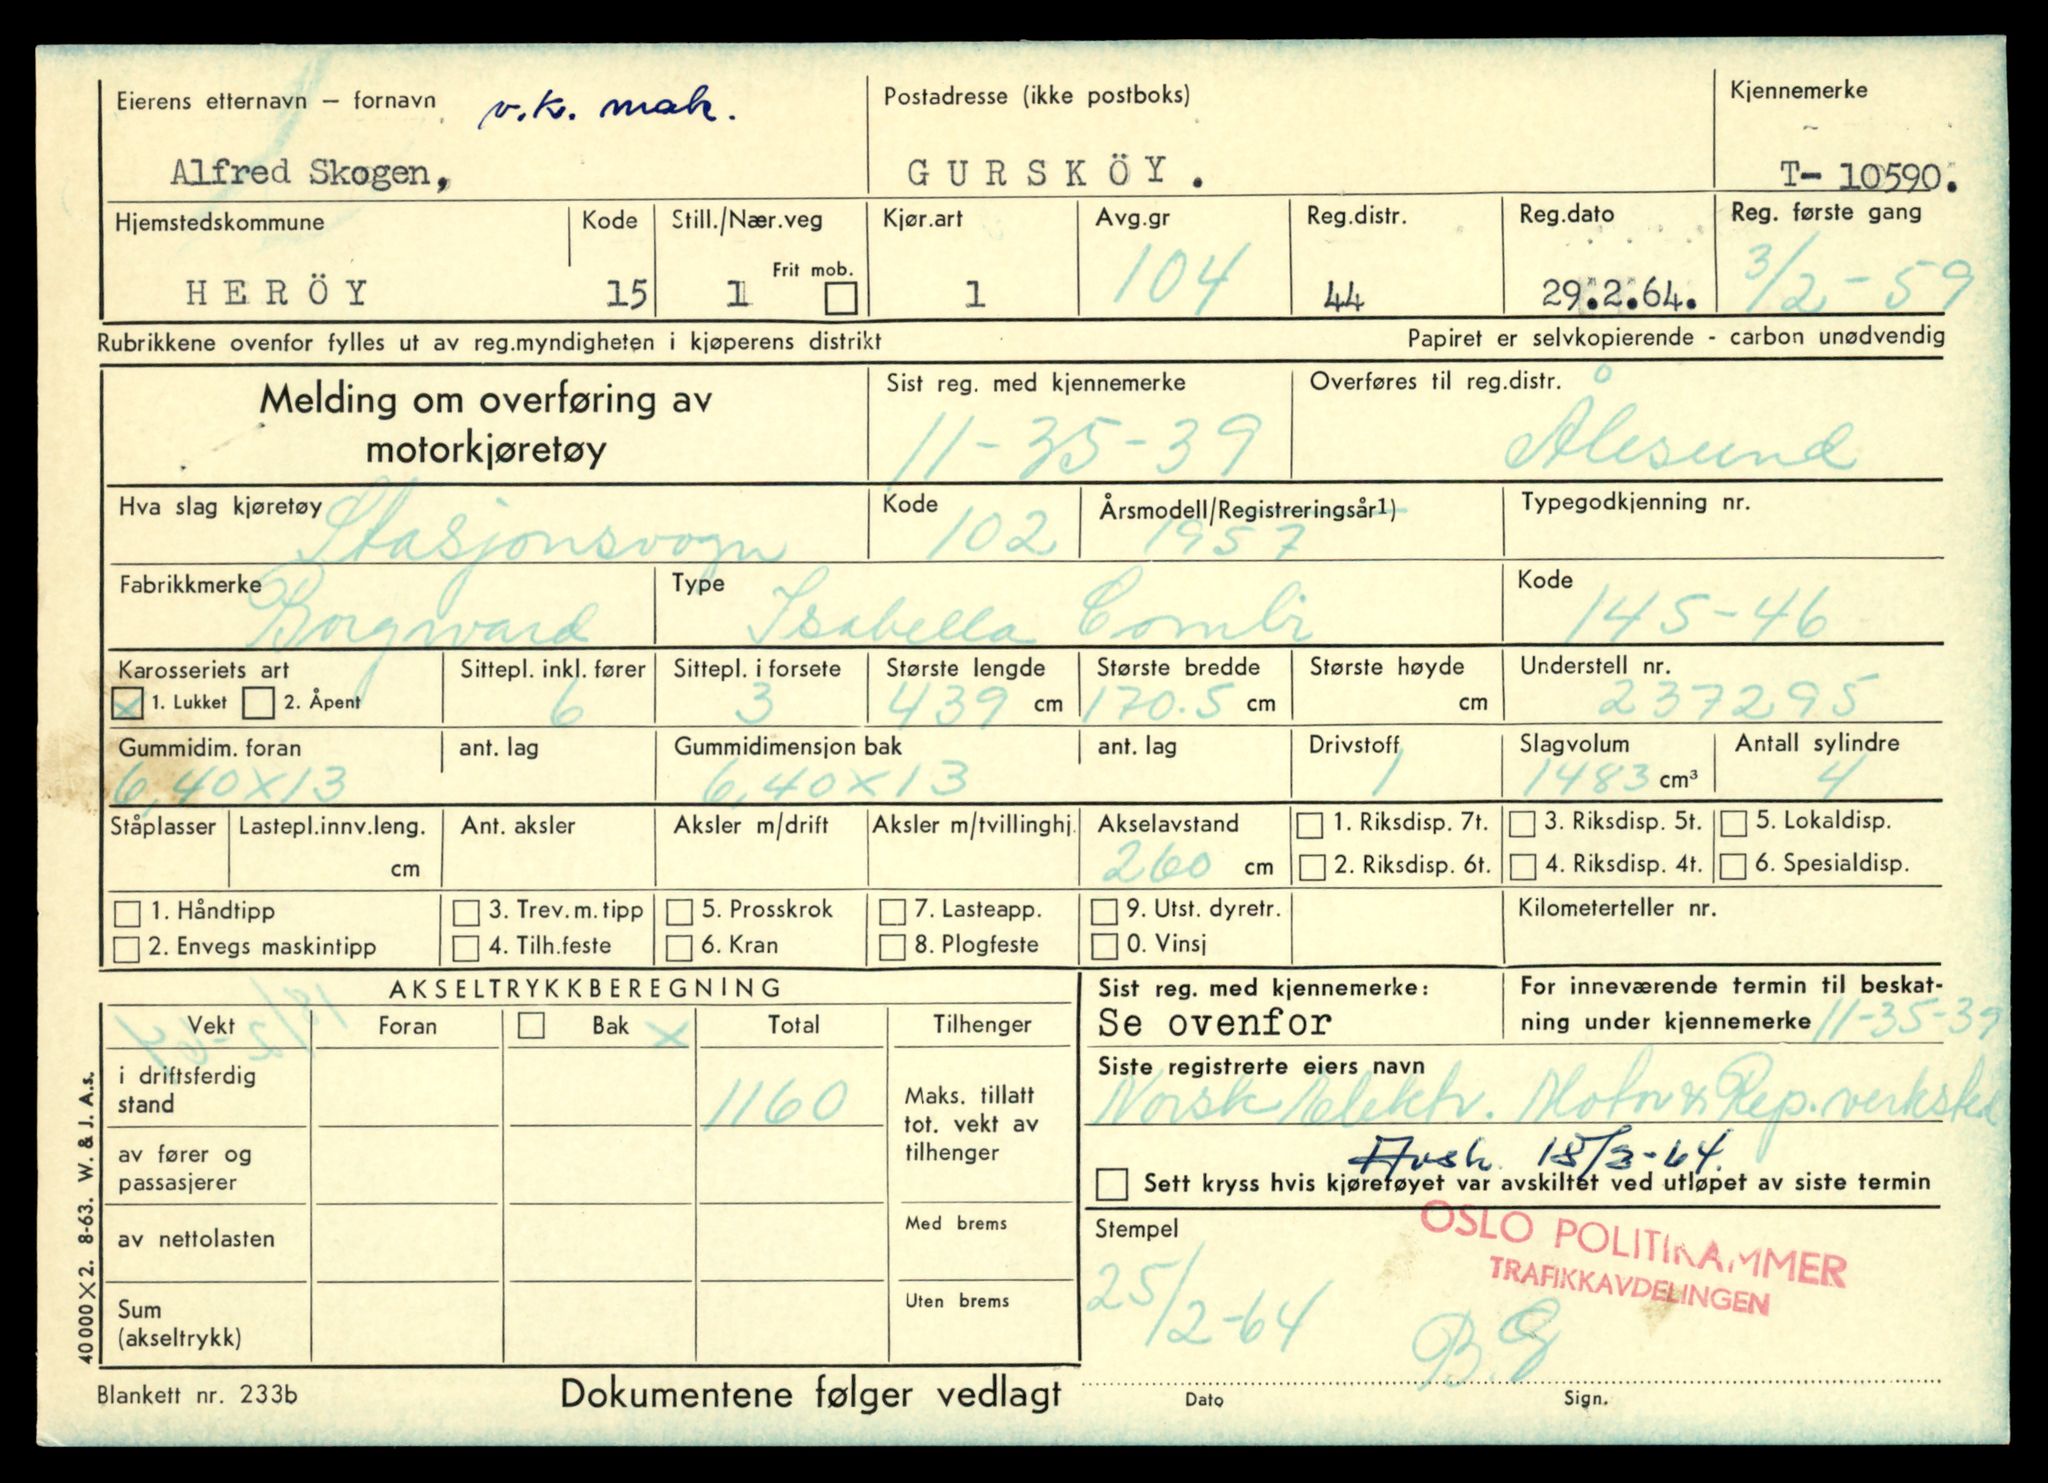 Eierens etternavn — fornavn v.k. mak. Postadresse (ikke postboks) Kjennemerke
Alfred Skogen, GURSKÖY. T- 10590.
Hjemstedskommune Kode Still./Nær.veg Kjør.art Avg.gr Reg.distr. Reg.dato Reg. første gang
HERÖY 15 1 Frit mob. 1 104 44 29.2.64. 3/2-59
Rubrikkene ovenfor fylles ut av reg.myndigheten i kjøperens distrikt Papiret er selvkopierende - carbon unødvendig
Melding om overføring av Sist reg. med kjennemerke Overføres til reg.distr.
motorkjøretøy 11-35-39 Ålesund
Hva slag kjøretøy Kode Årsmodell/Registreringsår1) Typegodkjenning nr.
Stasjonsvogn 102 1957
Fabrikkmerke Type Kode
Borgward Isabella Combi 145-46
Karosseriets art Sittepl. inkl. fører Sittepl. i forsete Største lengde Største bredde Største høyde Understell nr.
x 1. Lukket 2. Åpent 6 3 439 cm 170.5 cm cm 237295
Gummidim. foran ant. lag Gummidimensjon bak ant. lag Drivstoff Slagvolum Antall sylindre
6,40x13 6,40x13 1 1483 cm³ 4
Ståplasser Lastepl.innv.leng. Ant. aksler Aksler m/drift Aksler m/tvillinghj. Akselavstand 1. Riksdisp. 7t. 3. Riksdisp. 5t. 5. Lokaldisp.
cm 260 cm 2. Riksdisp. 6t. 4. Riksdisp. 4t. 6. Spesialdisp.
1. Håndtipp 3. Trev.m.tipp 5. Prosskrok 7. Lasteapp. 9. Utst. dyretr. Kilometerteller nr.
2. Envegs maskintipp 4. Tilh.feste 6. Kran 8. Plogfeste 0. Vinsj
AKSELTRYKKBEREGNING Sist reg. med kjennemerke: For inneværende termin til beskat-
Vekt Foran Bak x Total Tilhenger Se ovenfor ning under kjennemerke 11-35-39
18/2-64
i driftsferdig Siste registrerte eiers navn
stand 1160 Maks. tillatt Norsk Elektr. Motor & Rep.verksted
tot. vekt av
av fører og tilhenger Avsk. 18/2-64.
passasjerer Sett kryss hvis kjøretøyet var avskiltet ved utløpet av siste termin
av nettolasten Med brems Stempel OSLO POLITIKAMMER
TRAFIKKAVDELINGEN
Sum Uten brems 25/2-64 B.G
(akseltrykk)
40000 X 2. 8-63. W. & J. A.s.
Blankett nr. 233b Dokumentene følger vedlagt Dato Sign.